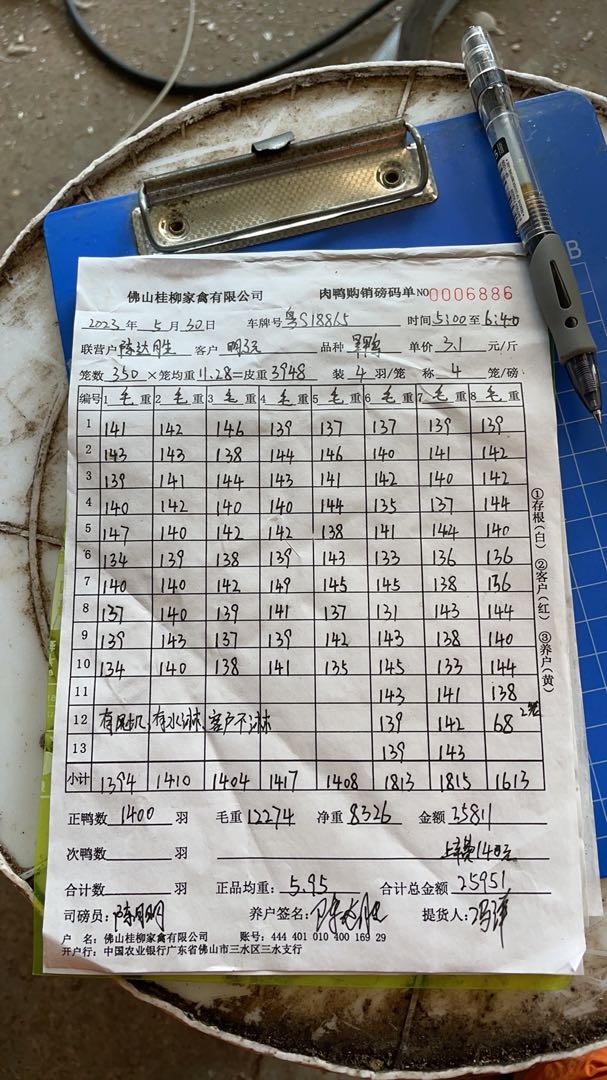 佛山桂柳家禽有限公司 肉鸭购销磅码单 NO 0006886
2023 年 5 月 30 日 车牌号 粤S18865 时间 5:00 至 6:40
联营户 陈达胜 客户 品种 单价 3.1 元/斤
笼数 350 ×笼均重 11.28 =皮重 3948 装 4 羽/笼 称 4 笼/磅
编号 1 毛 重 2 毛 重 3 毛 重 4 毛 重 5 毛 重 6 毛 重 7 毛 重 8 毛 重
1 141 142 146 139 137 137 139 139
2 143 143 138 144 146 140 141 142
3 139 141 144 143 141 142 140 142
4 140 142 140 140 144 135 137 144
5 147 140 142 142 138 141 144 140
6 134 139 138 139 143 133 136 136
7 140 140 142 149 145 145 138 136
8 137 140 139 141 137 131 143 144
9 139 143 137 139 142 143 138 140
10 134 140 138 141 135 145 133 144
11 143 141 138
12 有风机,有水淋、客户不淋 139 142 68 2笼
13 139 143
小计 1394 1410 1404 1417 1408 1813 1815 1613
正鸭数 1400 羽 毛重 12274 净重 8326 金额 25811
次鸭数 羽 上车费140元
合计数 羽 正品均重: 5.95 合计总金额 25951
司磅员: 养户签名: 陈达胜 提货人:
户 名: 佛山桂柳家禽有限公司 账号: 444 401 010 400 169 29
开户行: 中国农业银行广东省佛山市三水区三水支行
①存根(白) ②客户(红) ③养户(黄)
B